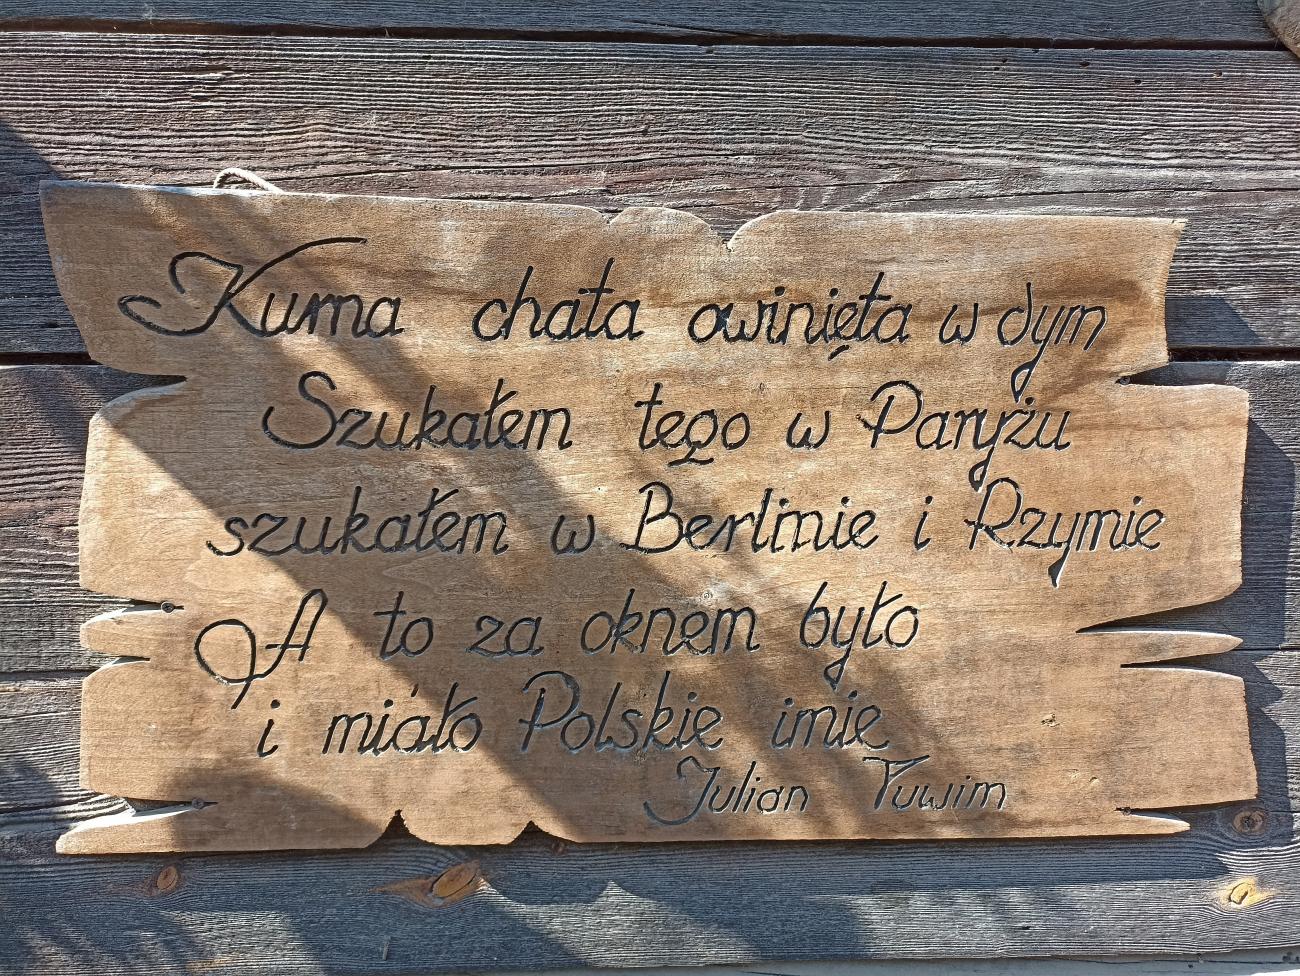 Kurna chata owinięta w dym
Szukałem tego w Paryżu
szukałem w Berlinie i Rzymie
A to za oknem było
i miało Polskie imię
Julian Tuwim